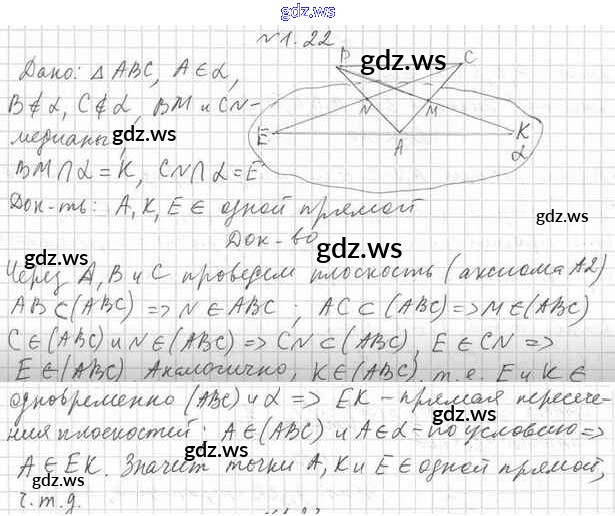 gdz.ws
№1.22
gdz.ws
B
gdz.ws
C
Дано: △ABC, A∈α,
B∉α, C∉α, BM и CN-
N
M
медианы,
gdz.ws
E
A
K
α
BM∩α=K, CN∩α=E
Док-ть: A, K, E ∈ одной прямой
gdz.ws
Док-во
gdz.ws
gdz.ws
Через A, B и C проведем плоскость (аксиома A2)
AB⊂(ABC) => N∈ABC ; AC⊂(ABC)=>M∈(ABC)
C∈(ABC) и N∈(ABC) => CN⊂(ABC), E∈CN =>
E∈(ABC). Аналогично, K∈(ABC), т.е. E и K∈
одновременно (ABC) и α => EK - прямая пересече-
gdz.ws
gdz.ws
ния плоскостей: A∈(ABC) и A∈α - по условию =>
A∈EK. Значит точки A, K и E∈одной прямой,
gdz.ws
gdz.ws
ч.т.д.
gdz.ws